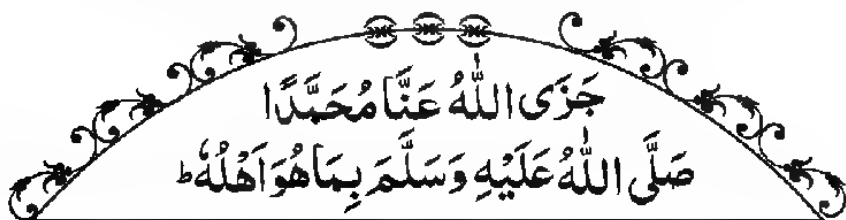 جَزَى اللّٰهُ عَنَّا مُحَمَّدًا
صَلَّى اللّٰهُ عَلَيْهِ وَسَلَّمَ بِمَا هُوَ اَهْلُهٗ ؕ